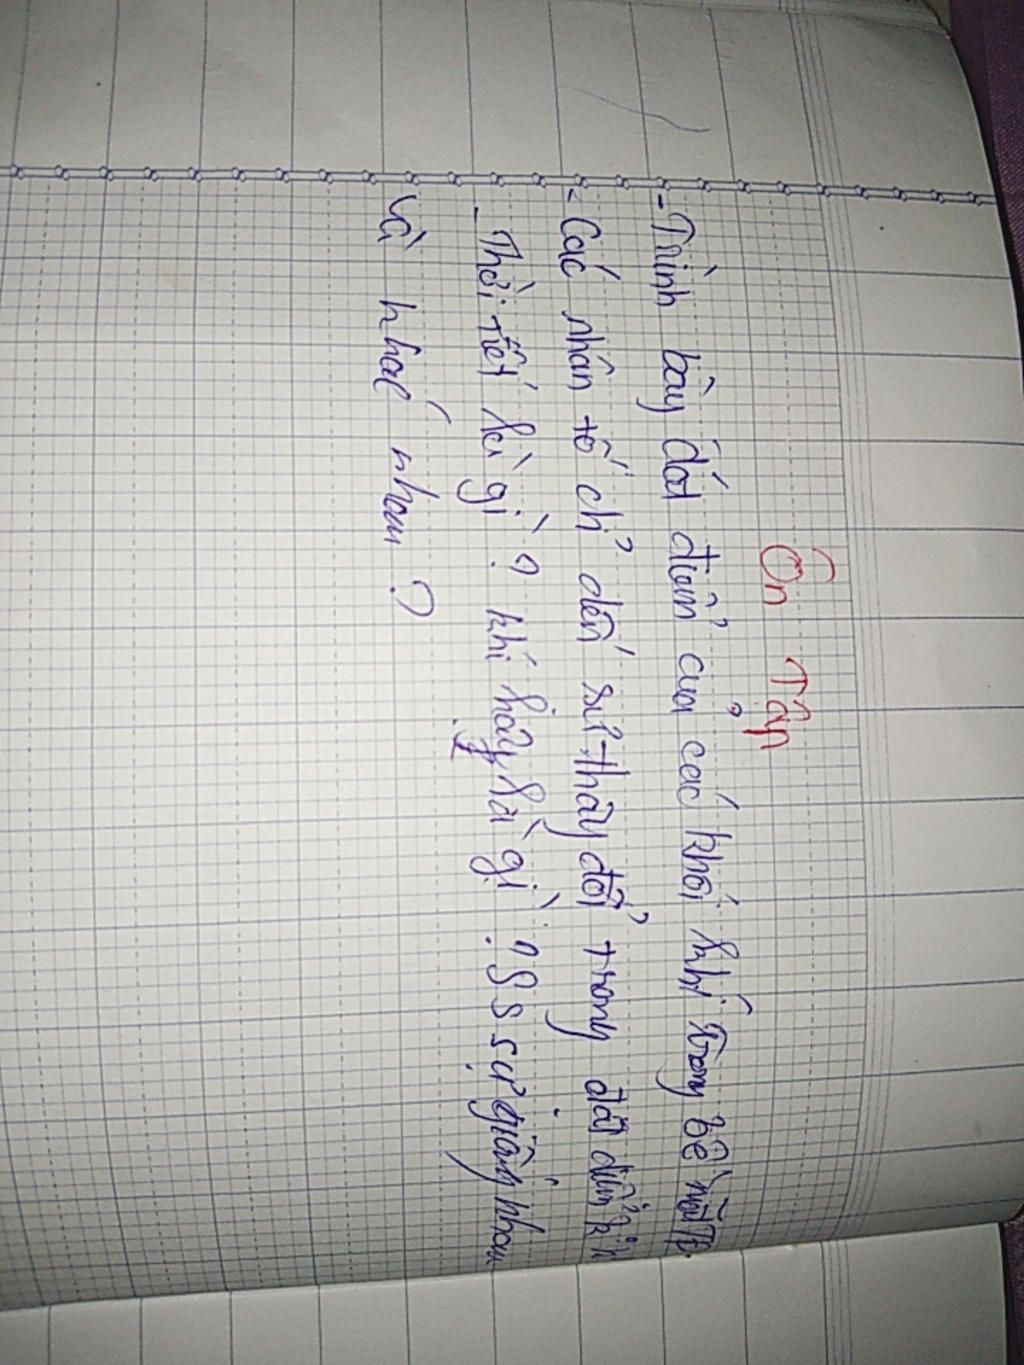 Ôn Tập
- Trình bày đặt điểm của các khối khí trong bề mặt TĐ
- Các nhân tố chỉ đến sự thay đổi trong đặt điểm k k
- Thời tiết là gì? khí hậu là gì? SS sự giống nhau
và khác nhau?